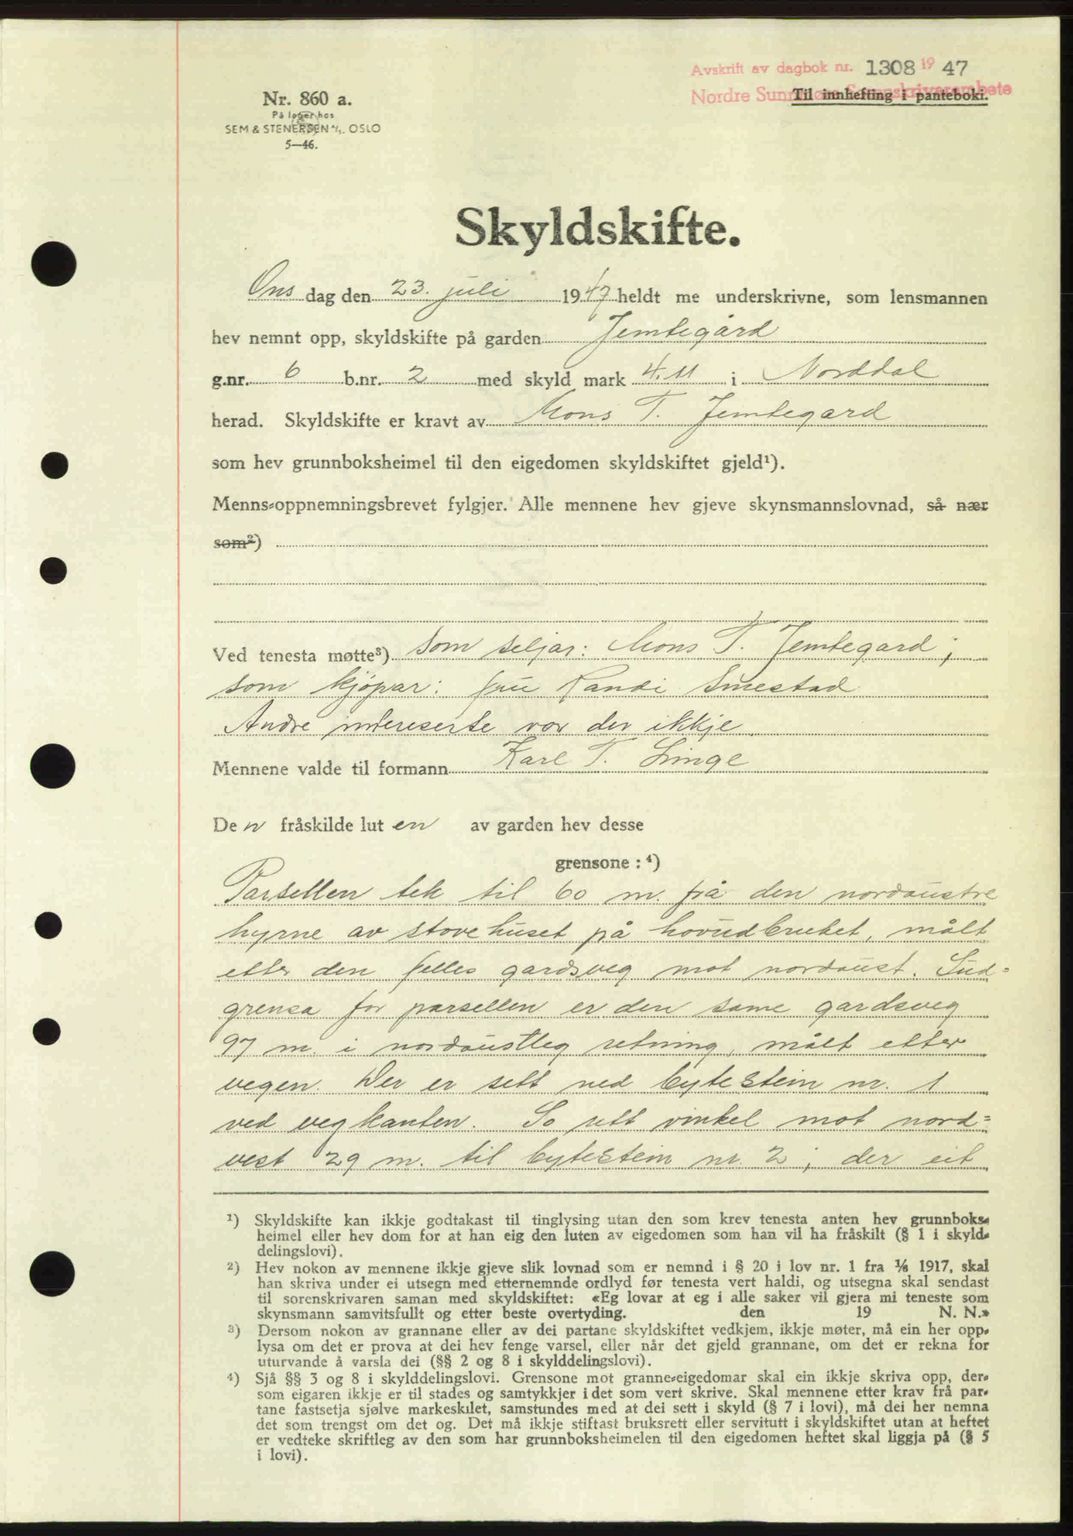 Avskrift av dagbok nr. 1308 19 47
Nordre Sunnmøre Sorenskriverembete
Til innhefting i panteboki.
Nr. 860 a.
På lager hos
SEM & STENERSEN A/S. OSLO
5—46.
Skyldskifte.
Ons dag den 23. juli 1947 heldt me underskrivne, som lensmannen
hev nemnt opp, skyldskifte på garden Jemtegård
g.nr. 6 b.nr. 2 med skyld mark 4.11 i Norddal
herad. Skyldskifte er kravt av Mons T. Jemtegard
som hev grunnboksheimel til den eigedomen skyldskiftet gjeld¹).
Menns-oppnemningsbrevet fylgjer. Alle mennene hev gjeve skynsmannslovnad, så nær
som²)
Ved tenesta møtte³) som seljar: Mons T. Jemtegard;
som kjøpar: fru Randi Smestad
Andre intereserte var der ikkje.
Mennene valde til formann Karl T. Linge
Den fråskilde luten av garden hev desse
grensone : ⁴)
Parsellen tek til 60 m. frå den nordaustre
hyrne av stovehuset på hovudbruket, målt
etter den felles gardsveg mot nordaust. Sud-
grensa for parsellen er den same gardsveg
97 m. i nordaustleg retning, målt etter
vegen. Der er sett ned bytestein nr. 1
ved vegkanten. So rett vinkel mot nord-
vest 29 m. til bytestein nr. 2, der eit
¹) Skyldskifte kan ikkje godtakast til tinglysing utan den som krev tenesta anten hev grunnboks-
heimel eller hev dom for at han eig den luten av eigedomen som han vil ha fråskilt (§ 1 i skyld-
delingslovi).
²) Hev nokon av mennene ikkje gjeve slik lovnad som er nemnd i § 20 i lov nr. 1 fra 1/6 1917, skal
han skriva under ei utsegn med etternemnde ordlyd før tenesta vert haldi, og utsegna skal sendast
til sorenskrivaren saman med skyldskiftet: «Eg lovar at eg i alle saker vil gjera mi teneste som
skynsmann samvitsfullt og etter beste overtyding. den 19 N. N.»
³) Dersom nokon av grannane eller av dei partane skyldskiftet vedkjem, ikkje møter, må ein her opp-
lysa om det er prova at dei hev fenge varsel, eller når det gjeld grannane, om det er rekna for
uturvande å varsla dei (§§ 2 og 8 i skylddelingslovi).
⁴) Sjå §§ 3 og 8 i skylddelingslovi. Grensone mot granne-eigedomar skal ein ikkje skriva opp, der-
som eigaren ikkje er til stades og samtykkjer i det som vert skrive. Skal mennene etter krav frå par-
tane fastsetja sjølve markeskilet, samstundes med at dei sett i skyld (§ 7 i lovi), må dei her nemna
det som trengst om det og. Det må ikkje stiftast bruksrett eller servitutt i skyldskiftet utan at heftet
er vedteke skriftleg av den som har grunnboksheimelen til den eigedomen heftet skal liggja på (§ 5
i lovi).